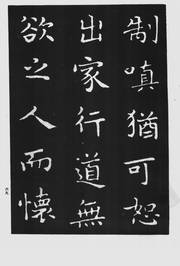 制嗔猶可恕
出家行道無
欲之人而懷